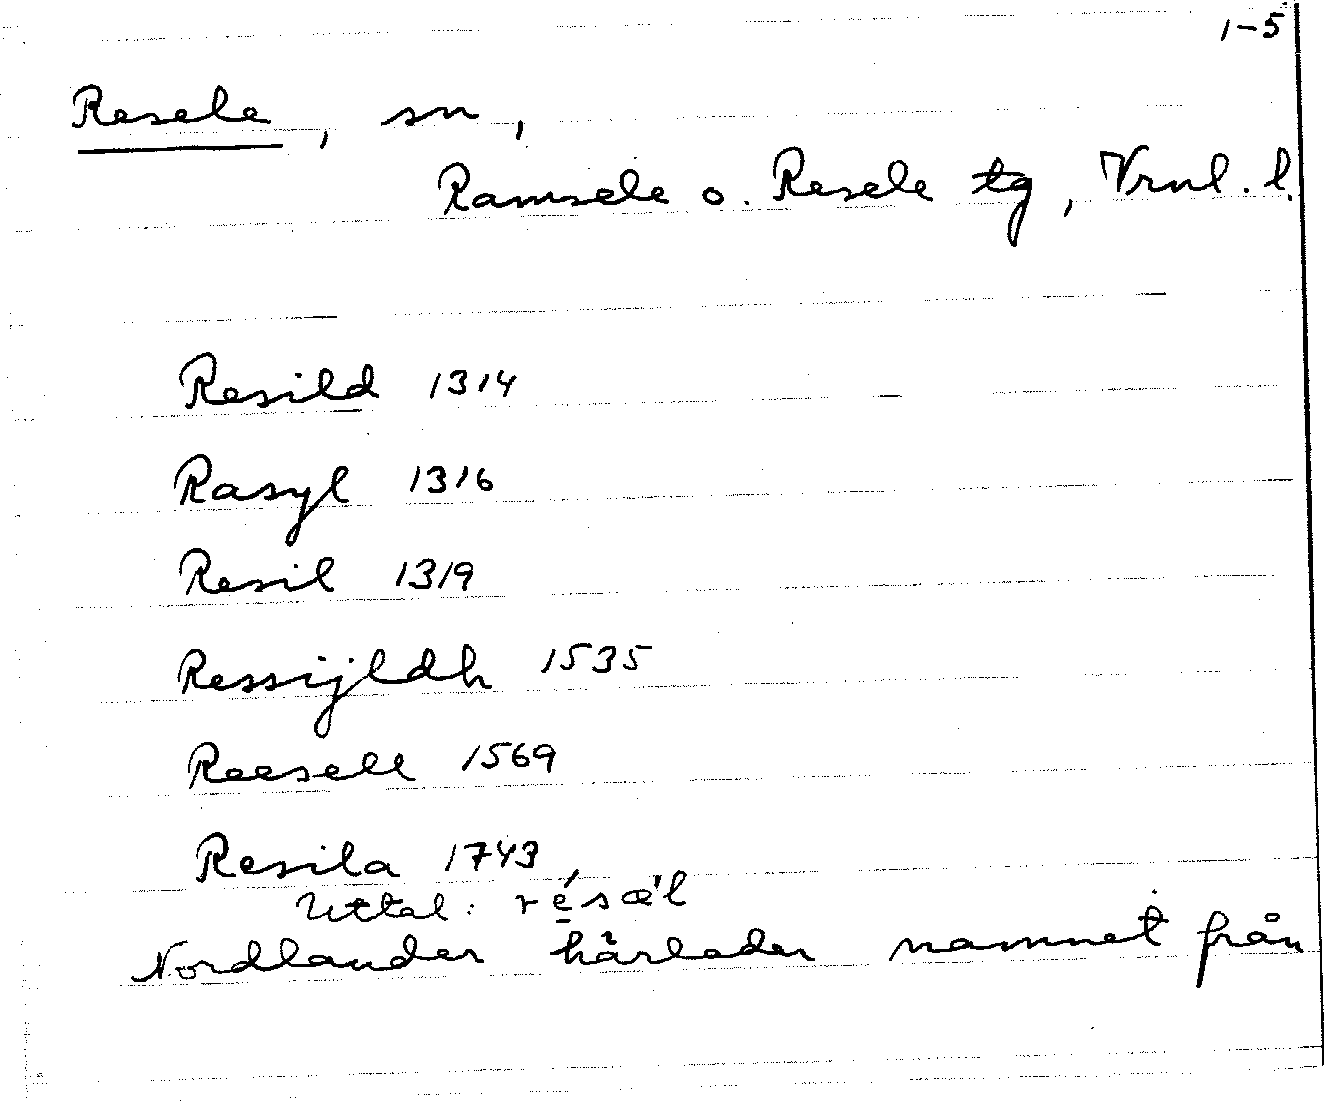 1-5
Resele, sn,
Ramsele o. Resele tg, Vrnl. l.
Resild 1314
Rasyl 1316
Resil 1319
Ressijldh 1535
Reesell 1569
Resila 1743
Uttal: résæ'l
Nordlander härleder namnet från